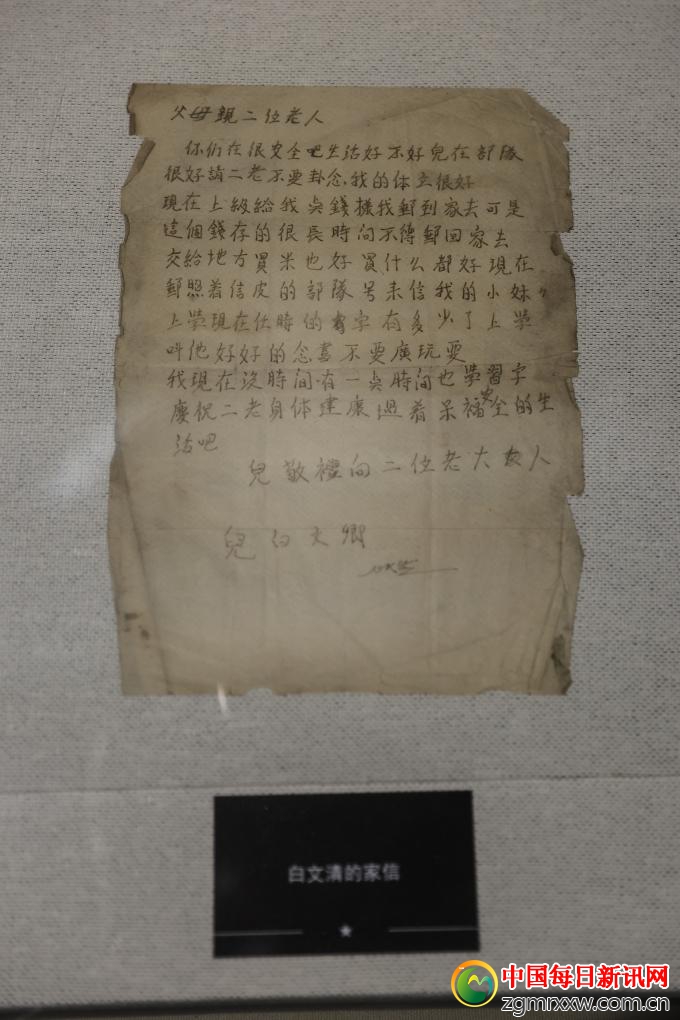 父母親二位老人
你们在很安全吧生活好不好兒在部隊
很好請二老不要卦念我的体立很好
現在上級給我点錢樣我郵到家去可是
這個錢存的很長時间不得郵回家去
交給地方買米也好買什么都好現在
郵照着信皮的部隊号来信我的小妹
上學現在仕時的字有多少了上學
叫他好好的念書不要廣玩耍
我現在沒時间有一点時间也學習字
慶祝二老身体建康過着呆福安全的生
活吧
兒敬禮向二位老大人
兒白文卿
白文清的家信
中国每日新讯网
zgmrxxw.com.cn